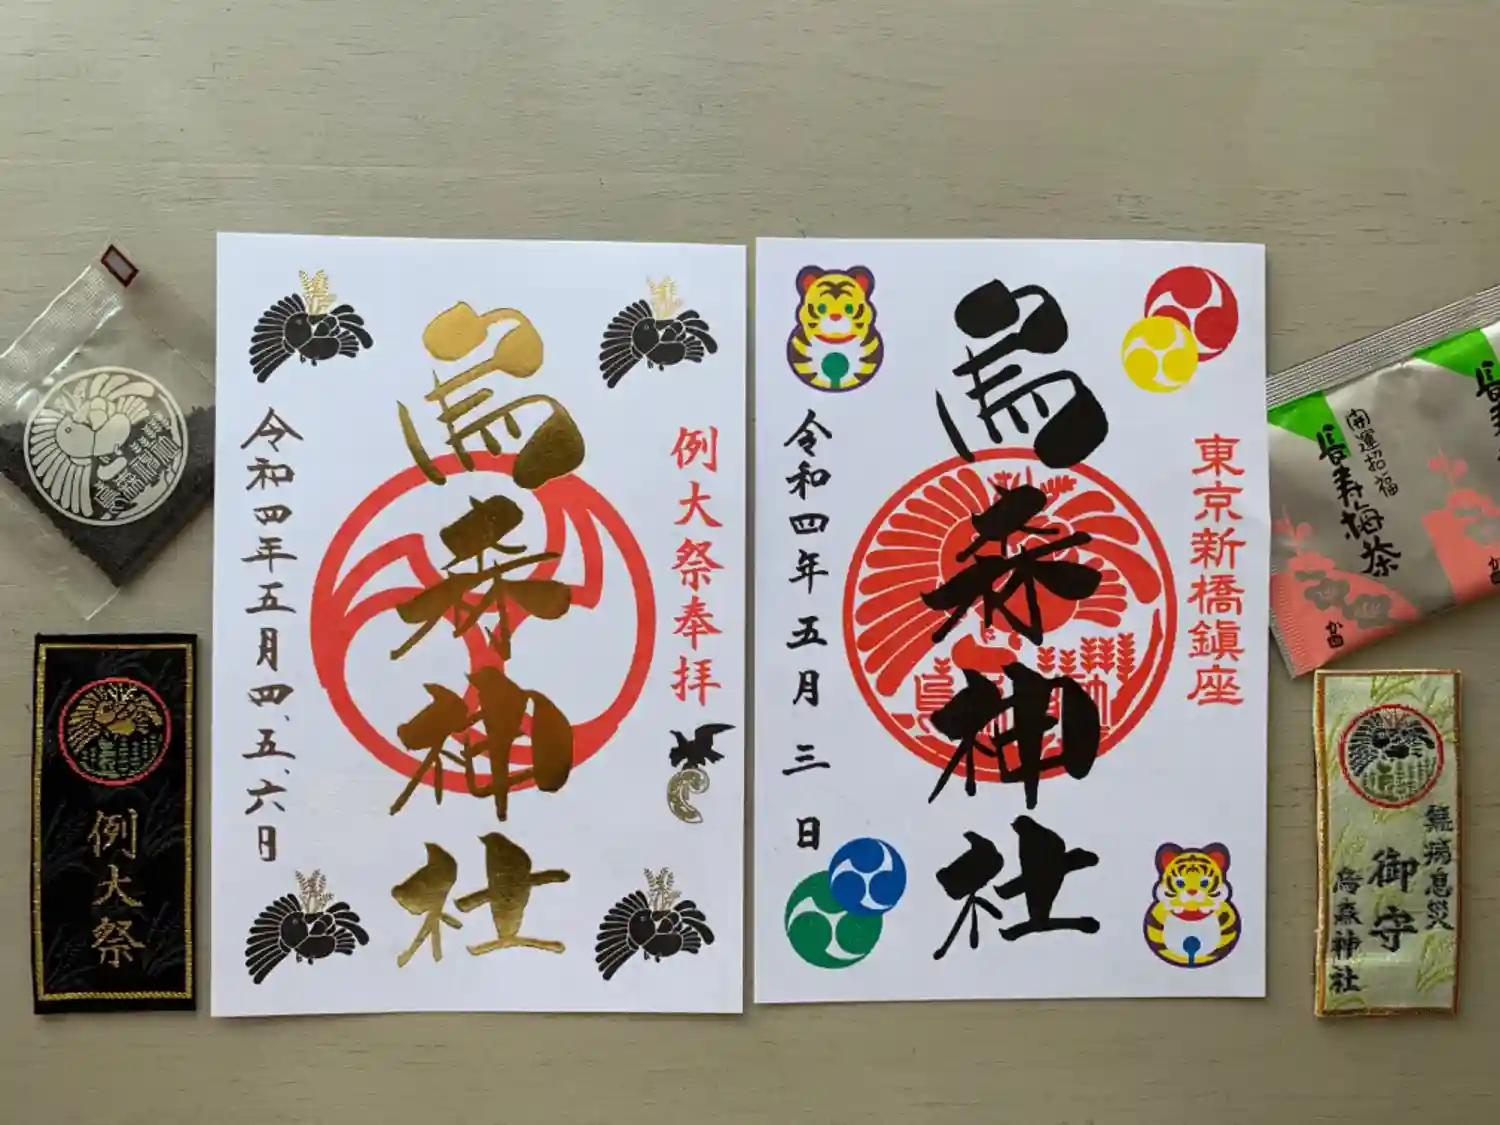 例大祭奉拝
烏森神社
令和四年五月四、五、六日
東京新橋鎮座
烏森神社
令和四年五月三日
例大祭
開運招福
長寿梅茶
無病息災
御守
烏森神社